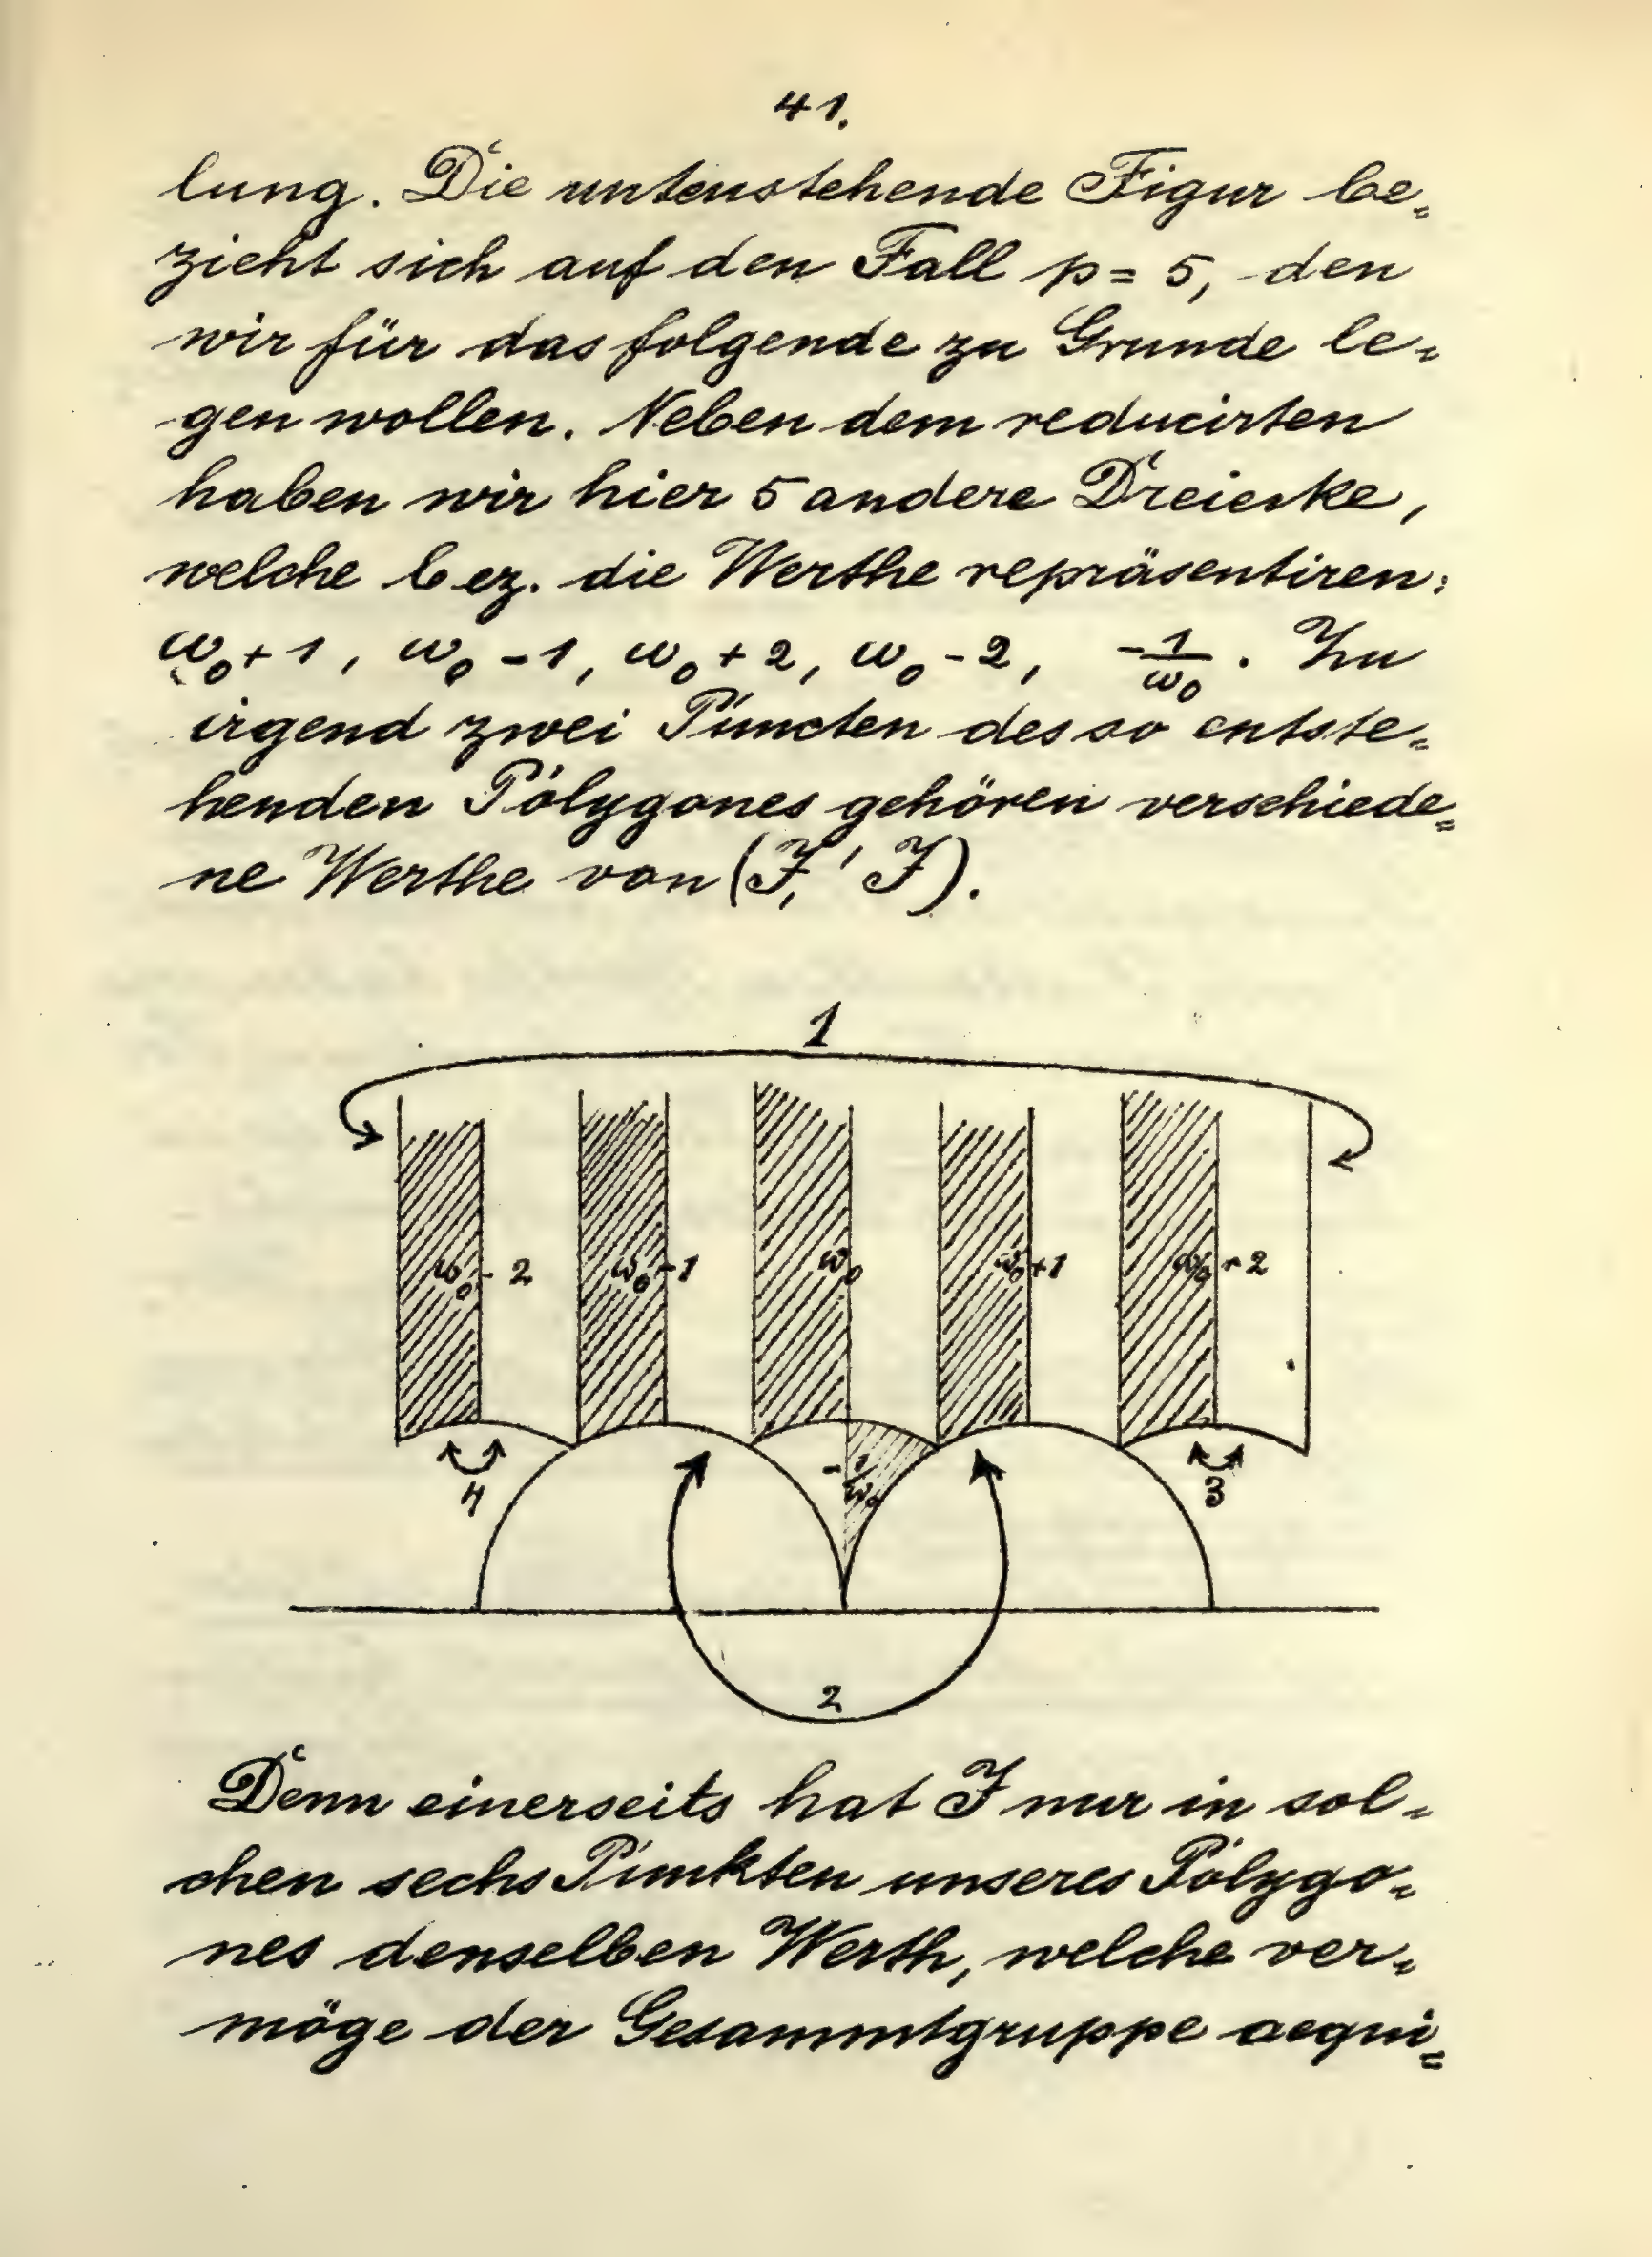 41.
lung. Die untenstehende Figur be=
zieht sich auf den Fall p = 5, den
wir für das folgende zu Grunde le=
gen wollen. Neben dem reducirten
haben wir hier 5 andere Dreiecke,
welche bez. die Werthe repräsentiren:
ω₀+1, ω₀-1, ω₀+2, ω₀-2, -1/ω₀. Zu
irgend zwei Puncten des so entste=
henden Polygones gehören verschiede=
ne Werthe von (J,' J).
1
ω₀-2 ω₀-1 ω₀ ω₀+1 ω₀+2
-1/ω₀
4 3
2
Denn einerseits hat J nur in sol=
chen sechs Punkten unseres Polygo=
nes denselben Werth, welche ver=
möge der Gesammtgruppe aequi=